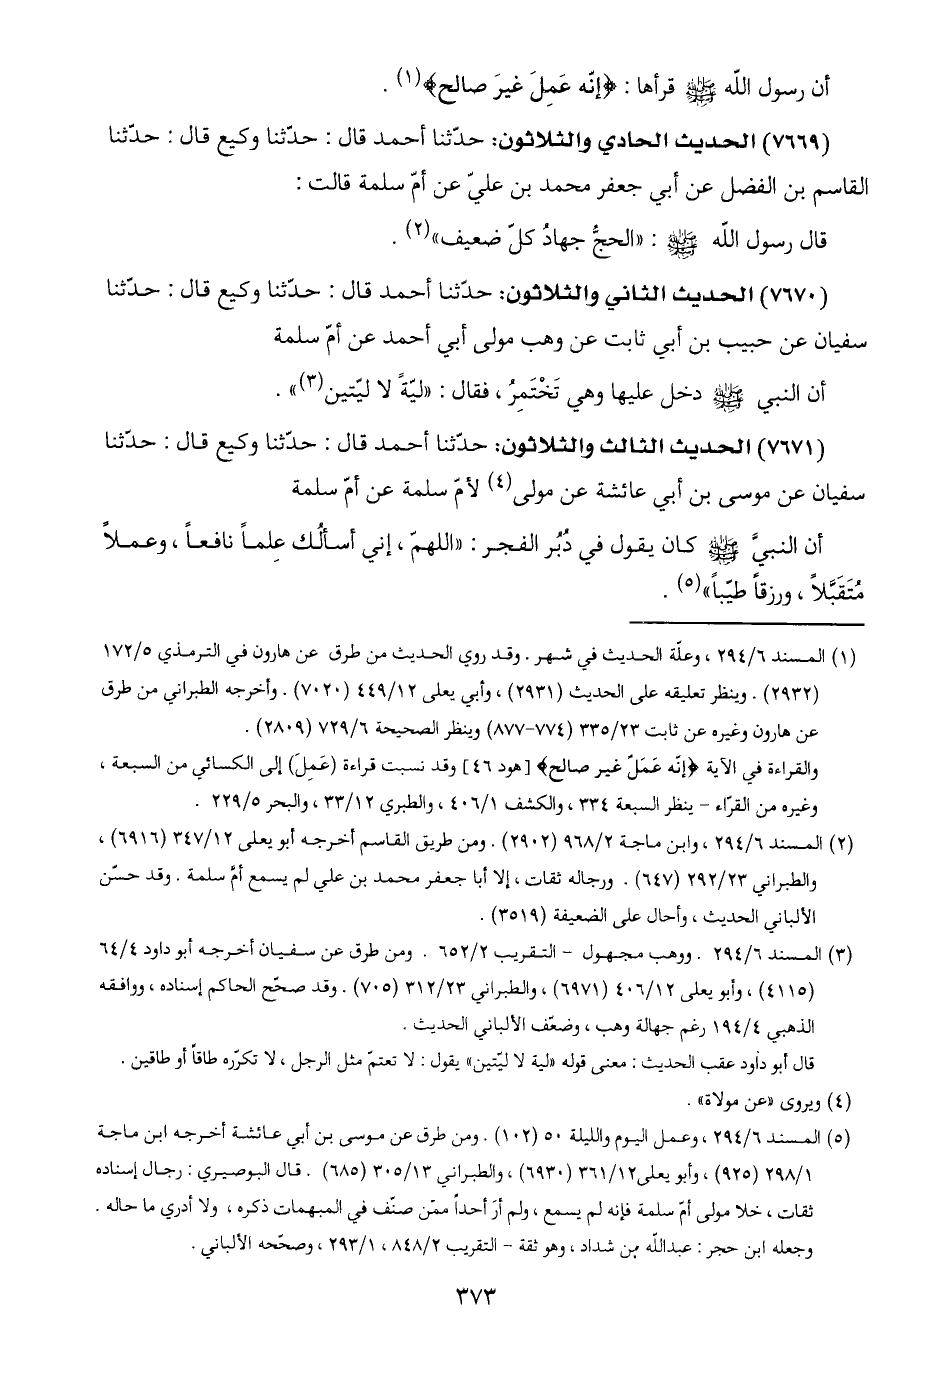 أن رسول الله ﷺ قرأها : ﴿إنّه عَمِلَ غيرَ صالح﴾(١) .
(٧٦٦٩) الحديث الحادي والثلاثون: حدّثنا أحمد قال : حدّثنا وكيع قال : حدّثنا
القاسم بن الفضل عن أبي جعفر محمد بن عليّ عن أمّ سلمة قالت :
قال رسول الله ﷺ : «الحجُّ جهادُ كلّ ضعيف»(٢) .
(٧٦٧٠) الحديث الثاني والثلاثون: حدّثنا أحمد قال : حدّثنا وكيع قال : حدّثنا
سفيان عن حبيب بن أبي ثابت عن وهب مولى أبي أحمد عن أمّ سلمة
أن النبي ﷺ دخل عليها وهي تَخْتَمِرُ ، فقال : «ليّةً لا ليّتين(٣)» .
(٧٦٧١) الحديث الثالث والثلاثون: حدّثنا أحمد قال : حدّثنا وكيع قال : حدّثنا
سفيان عن موسى بن أبي عائشة عن مولى(٤) لأمّ سلمة عن أمّ سلمة
أن النبيَّ ﷺ كان يقول في دُبُر الفجر : «اللهمّ ، إني أسألُك علماً نافعاً ، وعملاً
مُتَقَبَّلاً ، ورزقاً طيّباً»(٥) .
(١) المسند ٢٩٤/٦ ، وعلّة الحديث في شهر . وقد روي الحديث من طرق عن هارون في الترمذي ١٧٢/٥
(٢٩٣٢) . وينظر تعليقه على الحديث (٢٩٣١) ، وأبي يعلى ٤٤٩/١٢ (٧٠٢٠) . وأخرجه الطبراني من طرق
عن هارون وغيره عن ثابت ٣٣٥/٢٣ (٧٧٤-٨٧٧) وينظر الصحيحة ٧٢٩/٦ (٢٨٠٩) .
والقراءة في الآية ﴿إنّه عَمَلٌ غير صالح﴾ [هود ٤٦] وقد نسبت قراءة (عَمِلَ) إلى الكسائي من السبعة ،
وغيره من القرّاء - ينظر السبعة ٣٣٤ ، والكشف ٤٠٦/١ ، والطبري ٣٣/١٢ ، والبحر ٢٢٩/٥ .
(٢) المسند ٢٩٤/٦ ، وابن ماجة ٩٦٨/٢ (٢٩٠٢) . ومن طريق القاسم أخرجه أبو يعلى ٣٤٧/١٢ (٦٩١٦) ،
والطبراني ٢٩٢/٢٣ (٦٤٧) . ورجاله ثقات ، إلا أبا جعفر محمد بن علي لم يسمع أمَّ سلمة . وقد حسّن
الألباني الحديث ، وأحال على الضعيفة (٣٥١٩) .
(٣) المسند ٢٩٤/٦ . ووهب مجهول - التقريب ٦٥٢/٢ . ومن طرق عن سفيان أخرجه أبو داود ٦٤/٤
(٤١١٥) ، وأبو يعلى ٤٠٦/١٢ (٦٩٧١) ، والطبراني ٣١٢/٢٣ (٧٠٥) . وقد صحّح الحاكم إسناده ، ووافقه
الذهبي ١٩٤/٤ رغم جهالة وهب ، وضعّف الألباني الحديث .
قال أبو داود عقب الحديث : معنى قوله «لية لا ليّتين» يقول : لا تعتمّ مثل الرجل ، لا تكرّره طاقاً أو طاقين .
(٤) ويروى «عن مولاة» .
(٥) المسند ٢٩٤/٦ ، وعمل اليوم والليلة ٥٠ (١٠٢) . ومن طرق عن موسى بن أبي عائشة أخرجه ابن ماجة
٢٩٨/١ (٩٢٥) ، وأبو يعلى٣٦١/١٢ (٦٩٣٠) ، والطبراني ٣٠٥/١٣ (٦٨٥) . قال البوصيري : رجال إسناده
ثقات ، خلا مولى أمّ سلمة فإنه لم يسمع ، ولم أرَ أحداً ممّن صنّف في المبهمات ذكره ، ولا أدري ما حاله .
وجعله ابن حجر : عبدالله بن شداد ، وهو ثقة - التقريب ٨٤٨/٢ ، ٢٩٣/١ ، وصحّحه الألباني .
٣٧٣